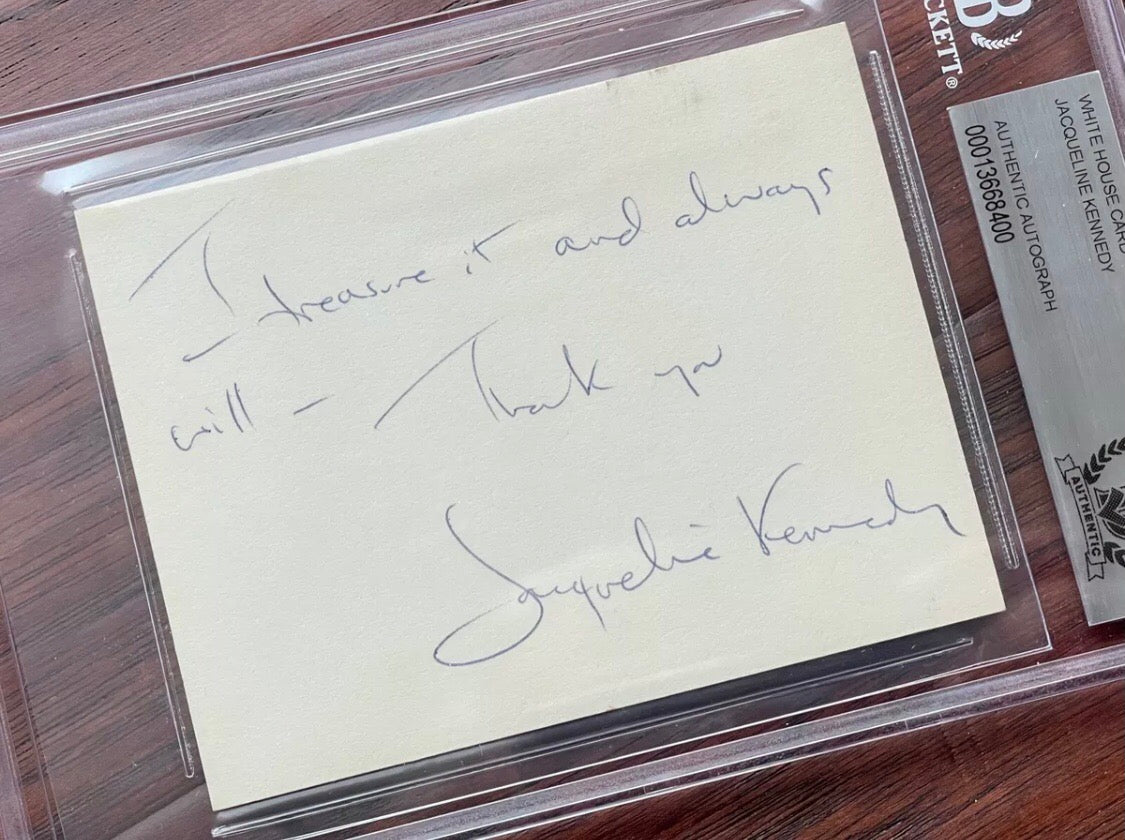 I treasure it and always
will – Thank you
Jacqueline Kennedy
B
CKETT®
WHITE HOUSE CARD
JACQUELINE KENNEDY
AUTHENTIC AUTOGRAPH
00013668400
AUTHENTIC